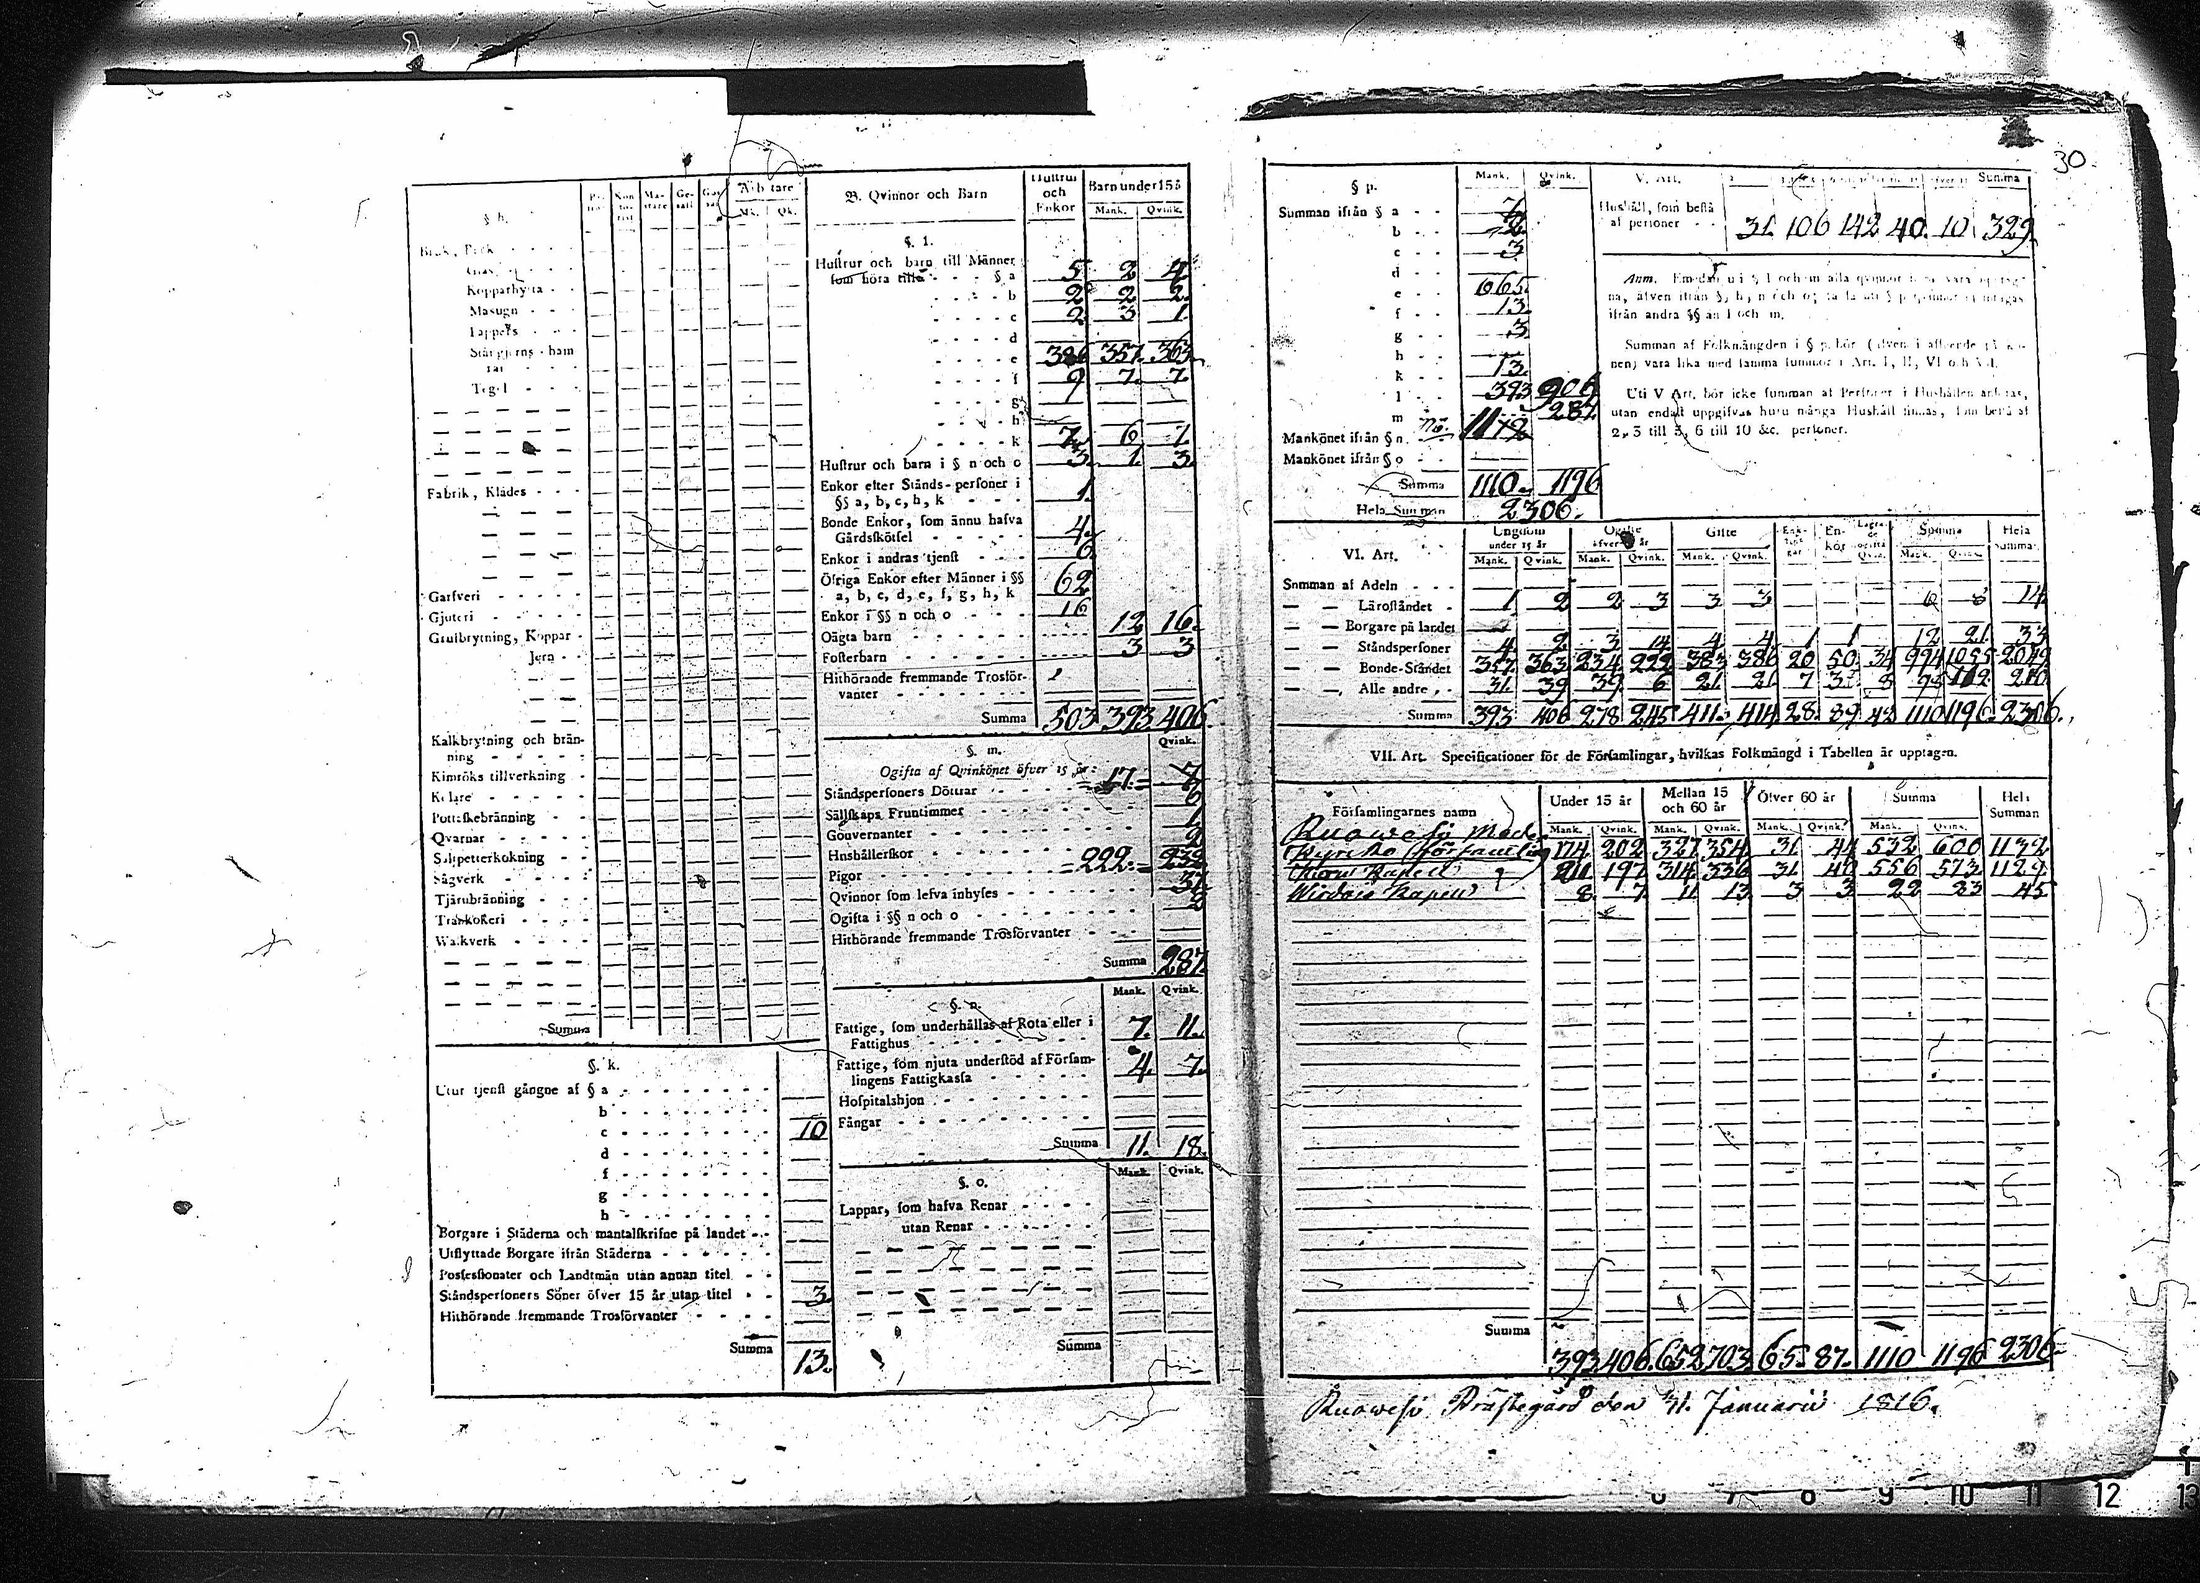 30
§ h.
Arbetare
Mk. Qk.
Bruk, Beck - - - -
Kopparhytta - -
Masugn - - -
Tegel - - - -
Fabrik, Klädes - - -
Garfveri - - - - -
Gjuteri - - - - -
Grufbrytning, Koppar -
Jern - -
Kalkbrytning och brän-
ning - - - - -
Kimröks tillverkning -
Pottaskebränning -
Qvarnar - - - - -
Salpetterkokning - -
Sågverk - - - - -
Tjärubränning - - -
Trankokeri - - - -
Walkverk - - - - -
Summa
§. k.
Utur tjenst gångne af § a - - - - - - -
b - - - - - - -
c - - - - - - - 10
d - - - - - - -
f - - - - - - -
g - - - - - - -
h - - - - - - -
Borgare i Städerna och mantalskrifne på landet - -
Utflyttade Borgare ifrån Städerna - - - - - -
Possessionater och Landtmän utan annan titel - -
Ståndspersoners Söner öfver 15 år utan titel - - 3.
Hithörande fremmande Trosförvanter - - - -
Summa 13.
B. Qvinnor och Barn Hustrur och Enkor Barn under 15 å
Mank. Qvink.
§. 1.
Hustrur och barn till Männer
som höra till - - - § a 5 2 4
- - - - b 2 2 2
- - - - c 2 3 1
- - - - d
- - - - e 386 357. 363.
- - - - f 9 7. 7.
- - - - g
- - - - h
- - - - k 7 6 1
Hustrur och barn i § n och o 3. 1. 3.
Enkor efter Stånds-personer i
§§ a, b, c, h, k - - - 1.
Bonde Enkor, som ännu hafva
Gårdsskötsel - - - - - 4.
Enkor i andras tjenst - - - 6
Öfriga Enkor efter Männer i §§
a, b, c, d, e, f, g, h, k 62
Enkor i §§ n och o - - - - 16
Oägta barn - - - - - - 12 16.
Fosterbarn - - - - - - 3 3
Hithörande fremmande Trosför-
vanter - - - - - -
Summa 503 393 406.
§. m. Qvink.
Ogifta af Qvinkönet öfver 15 år:
Ståndspersoners Döttrar - - - = 17. = 7
Sällskaps Fruntimmer - - - - 6
Gouvernanter - - - - - 1
Hushållerskor - - - - - 2
Pigor - - - - - = 222. = 232
Qvinnor som lefva inhyses - - - - 37
Ogifta i §§ n och o - - - - - 2
Hithörande fremmande Trosförvanter - - -
Summa 287.
§. n. Mank. Qvink.
Fattige, som underhållas af Rota eller i
Fattighus - - - - - - - 7. 11.
Fattige, som njuta understöd af Försam-
lingens Fattigkassa - - - - - 4. 7.
Hospitalshjon - - - - - - - -
Fångar - - - - - - - - - -
Summa 11. 18.
Mank. Qvink.
§. o.
Lappar, som hafva Renar - - - -
utan Renar - - - - -
Summa
§ p. Mank. Qvink.
Summan ifrån § a - - 7
b - - 2
c - - 3
d - -
e - - 665.
f - - 13.
g - - 3
h - -
k - - 13.
l - - 393 909
m - - 287.
Mankönet ifrån § n.
Mankönet ifrån § o - -
Summa 1110. 1196
Hela Summan 2306.
V. Art. Summa
Hushåll, som bestå
af personer - - 31. 106 142 40. 10. 329.
Anm. Emedan uti § l och m alla qvinnor böra vara upptag-
na, äfven ifrån §, h, n och o; så få uti § p qvinnor ej intagas
ifrån andra §§ än l och m.
Summan af Folkmängden i § p. bör (äfven i afseende på kö-
nen) vara lika med samma summor i Art. I, II, VI och VII.
Uti V Art. bör icke summan af Personer i Hushållen anföras,
utan endast uppgifvas huru många Hushåll finnas, som bestå af
2, 3 till 5, 6 till 10 &c. personer.
VI. Art. Ungdom under 15 år Ogifte öfver 15 år Gifte Enklingar Enkor Summa Hela Summan
Mank. Qvink. Mank. Qvink. Mank. Qvink. Mank. Qvink.
Summan af Adeln - - -
— — Läroståndet - 1 2 2 3 3 3 6 8 14
— — Borgare på landet
— — Ståndspersoner 4 2 3 14 4 4 1 1 12 21. 33
— — Bonde-Ståndet 357. 363 234 222 383 386 20 50. 34 994 1055 2049
— — Alle andre - - 31. 39 39 6 21. 21 7 8 210
Summa 393 406 278 245 411. 414 28. 89 42 1110 1196. 2306.
VII. Art. Specificationer för de Församlingar, hvilkas Folkmängd i Tabellen är upptagen.
Församlingarnes namn Under 15 år Mellan 15 och 60 år Öfver 60 år Summa Hela Summan
Mank. Qvink. Mank. Qvink. Mank. Qvink. Mank. Qvink.
Ruowesi Moder
Kyrcko församling 174 202 327 354 31. 44 532 600 1132
Kapell 211 197 314 336 31. 40 556 573 1129.
Wirdois Kapell 8. 7. 11. 13. 3 3. 22 23 45.
Summa
393 406. 652 703. 65. 87. 1110 1196 2306.
Ruowesi Prästegård den 31. Januarii 1816.
6 7 8 9 10 11 12 13